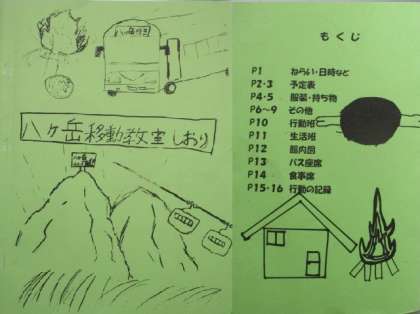 八ヶ岳移動教室しおり
もくじ
P1 ねらい・日時など
P2-3 予定表
P4-5 服装・持ち物
P6~9 その他
P10 行動班
P11 生活班
P12 館内図
P13 バス座席
P14 食事席
P15-16 行動の記録